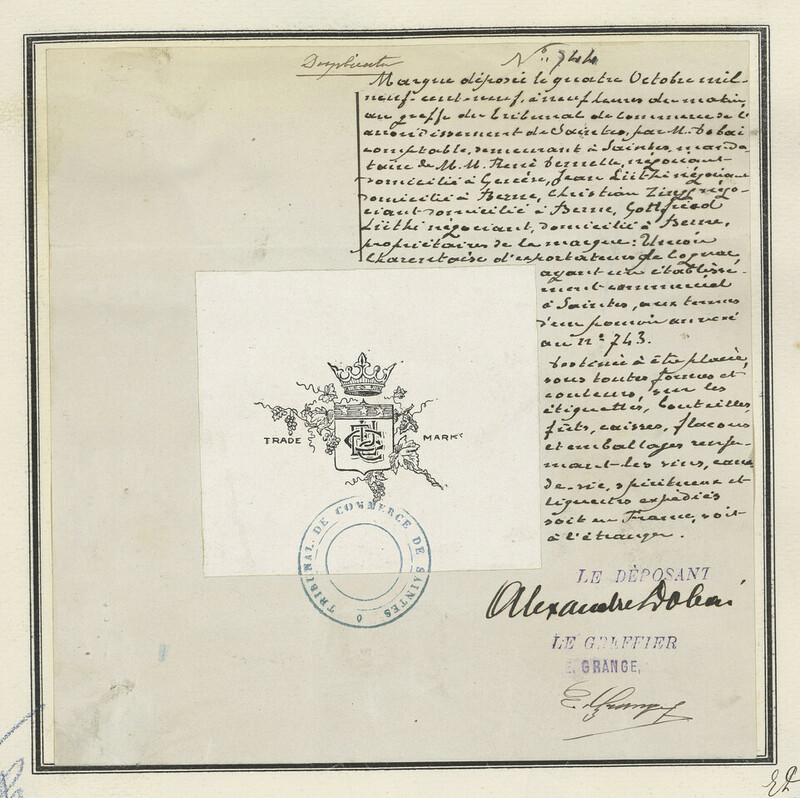 Duplicata
N°. 744
Marque déposée le quatre Octobre mil-
neuf-cent-neuf, à neuf heures du matin,
au greffe du Tribunal de Commerce de l'
arrondissement de Saintes, par M. Dobai
comptable, demeurant à Saintes, manda-
taire de M.M. René Vernelle, négociant
domicilié à Genève, Jean Lüthi négociant
domicilié à Berne, Christian Zingg négo-
ciant domicilié à Berne, Gottfried
Lüthi négociant, domicilié à Berne,
propriétaires de la marque: Union
Charentaise d'exportateurs de Cognac
ayant un établisse-
ment commercial
à Saintes, aux termes
d'un pouvoir annexé
au n° 743.
Destinée à être placée,
sous toutes formes et
couleurs, sur les
étiquettes, bouteilles,
fûts, caisses, flacons
et emballages renfer-
mant les vins, eaux
de-vie, spiritueux et
liqueurs expédiés
soit en France, soit
à l'étranger.
TRADE MARK
TRIBUNAL DE COMMERCE DE SAINTES
LE DÉPOSANT
Alexandre Dobai
LE GREFFIER
E. GRANGE,
E. Grange